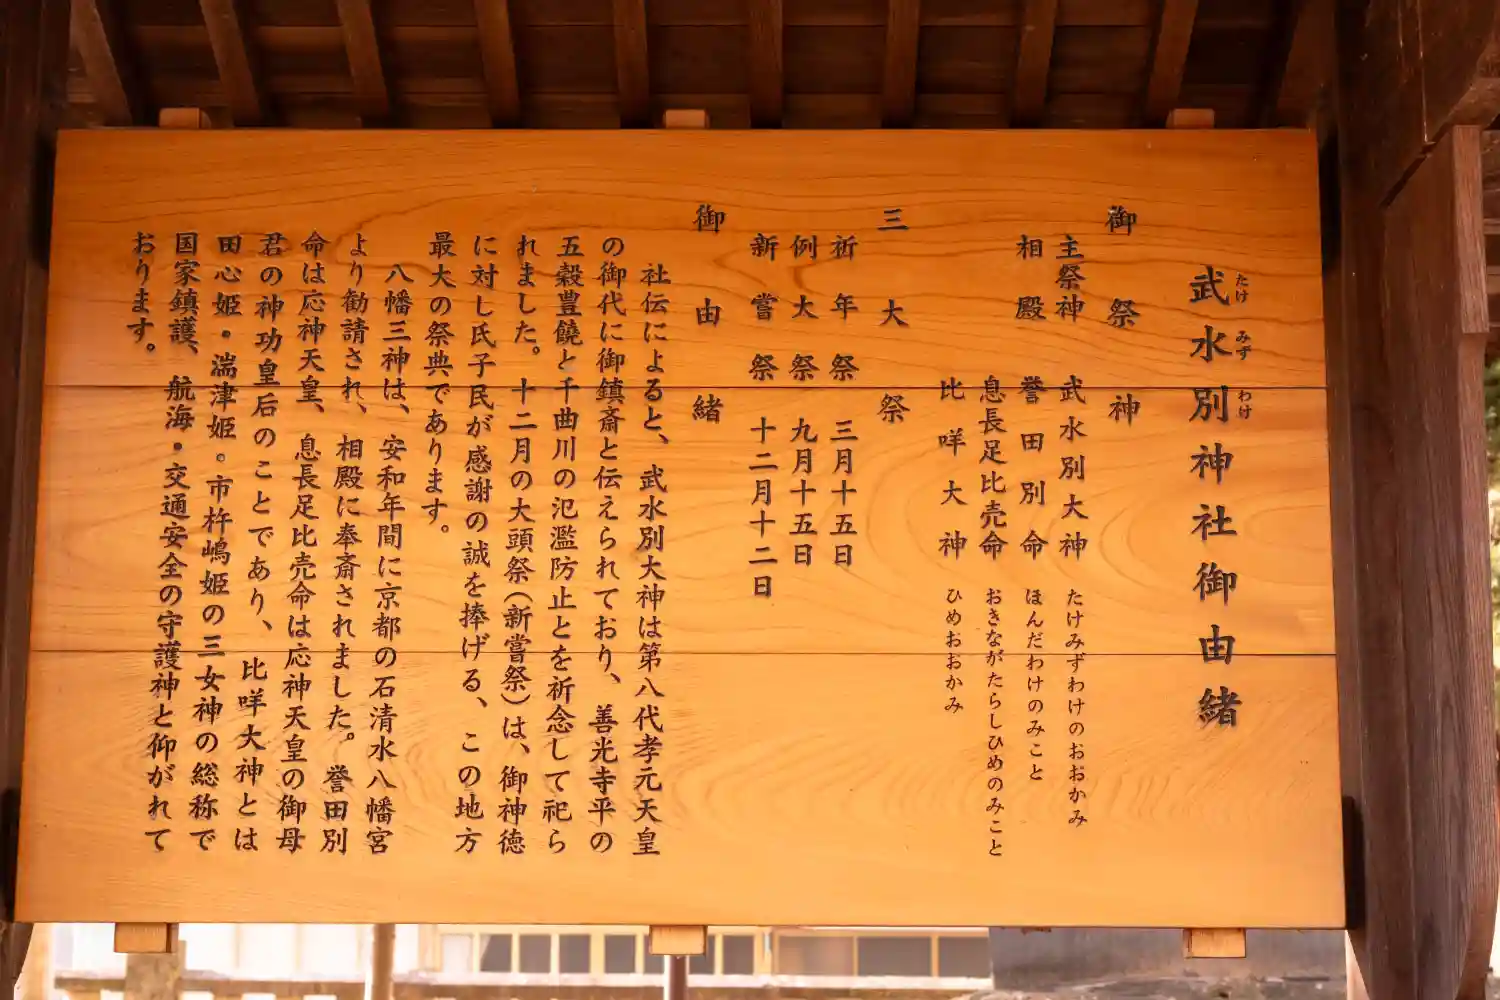 武水別神社御由緒
たけ みず わけ
御祭神
主祭神 武水別大神 たけみずわけのおおかみ
相殿 誉田別命 ほんだわけのみこと
息長足比売命 おきながたらしひめのみこと
比咩大神 ひめおおかみ
三大祭
祈年祭 三月十五日
例大祭 九月十五日
新嘗祭 十二月十二日
御由緒
社伝によると、武水別大神は第八代孝元天皇
の御代に御鎮斎と伝えられており、善光寺平の
五穀豊饒と千曲川の氾濫防止とを祈念して祀ら
れました。十二月の大頭祭(新嘗祭)は、御神徳
に対し氏子民が感謝の誠を捧げる、この地方
最大の祭典であります。
八幡三神は、安和年間に京都の石清水八幡宮
より勧請され、相殿に奉斎されました。誉田別
命は応神天皇、息長足比売命は応神天皇の御母
君の神功皇后のことであり、比咩大神とは
田心姫・湍津姫。市杵嶋姫の三女神の総称で
国家鎮護、航海・交通安全の守護神と仰がれて
おります。